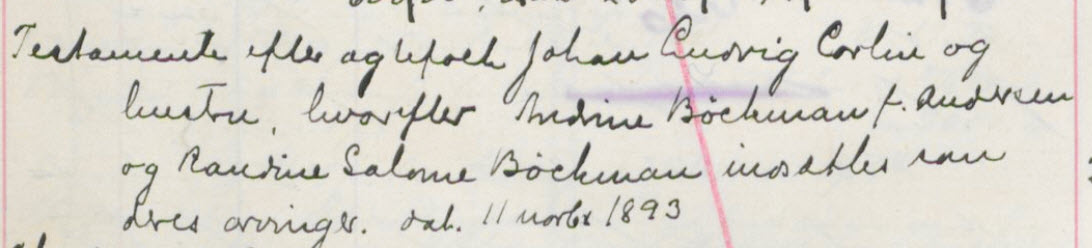 Testamente efter ægtefolk Johan Ludvig Corlin og
hustru, hvorefter Andrine Böckman f. Andersen
og Randine Salome Böckman indsættes som
deres arvinger. dat. 11 novbr 1893